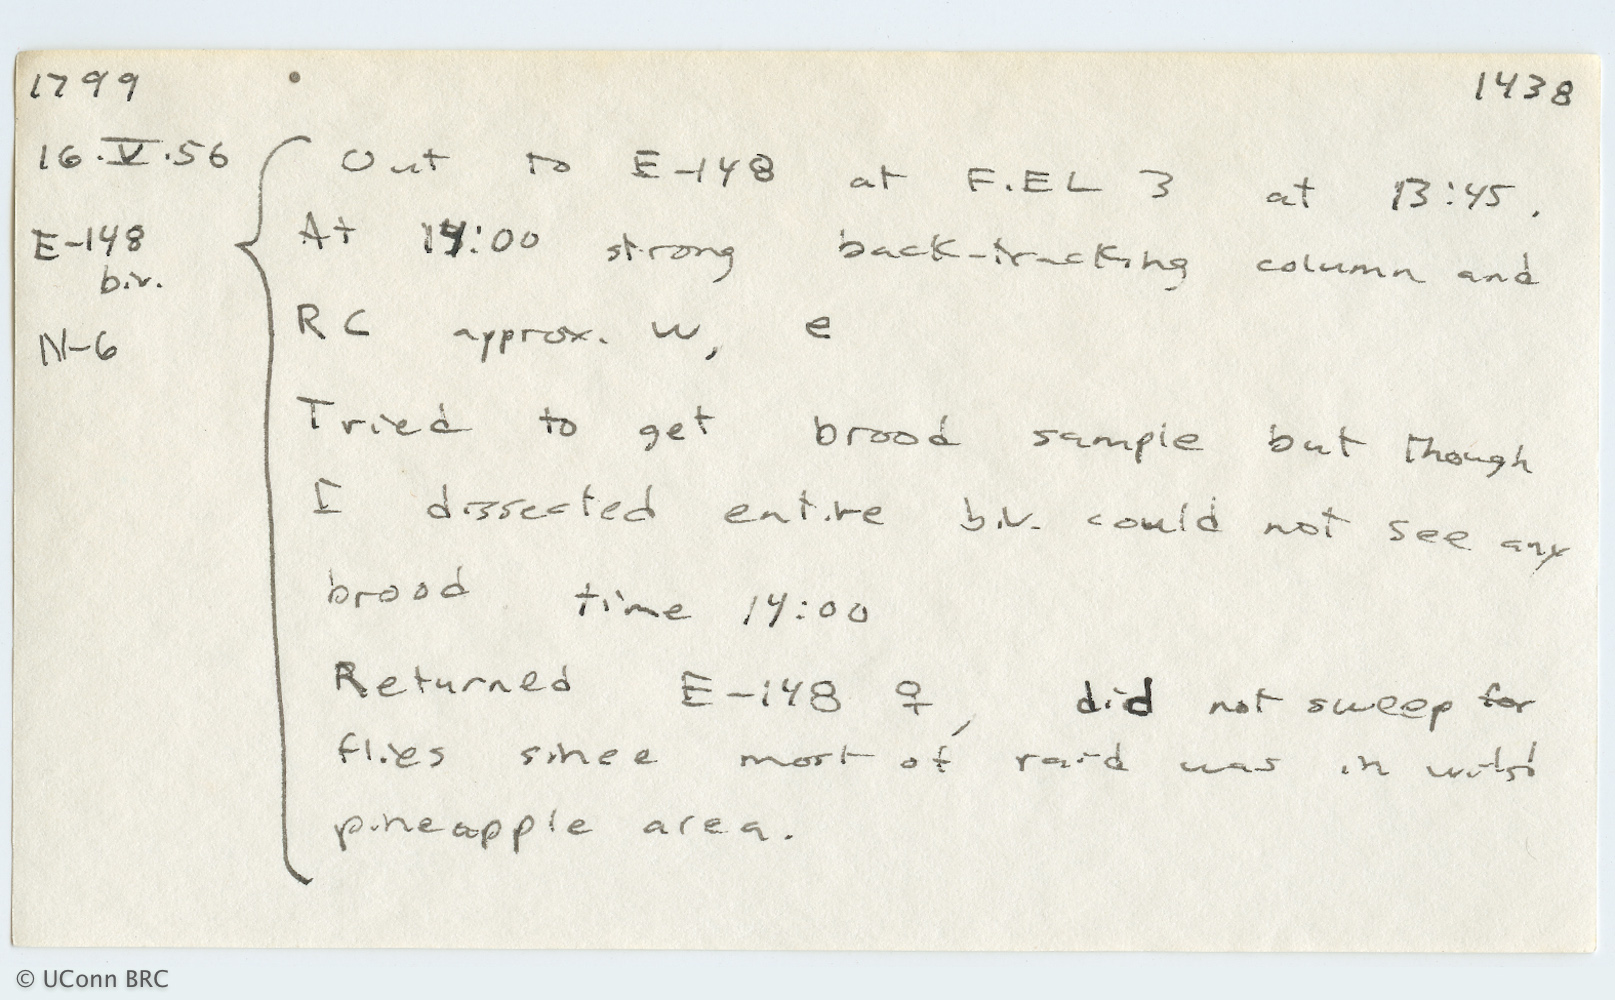 1799
1438
16.V.56
E-148
biv.
N-6
Out to E-148 at F.EL 3 at 13:45.
At 14:00 strong back-tracking column and
RC approx. w, e
Tried to get brood sample but though
I dissected entire biv. could not see any
brood time 14:00
Returned E-148 ♀, did not sweep for
flies since most of raid was in wild
pineapple area.
© UConn BRC